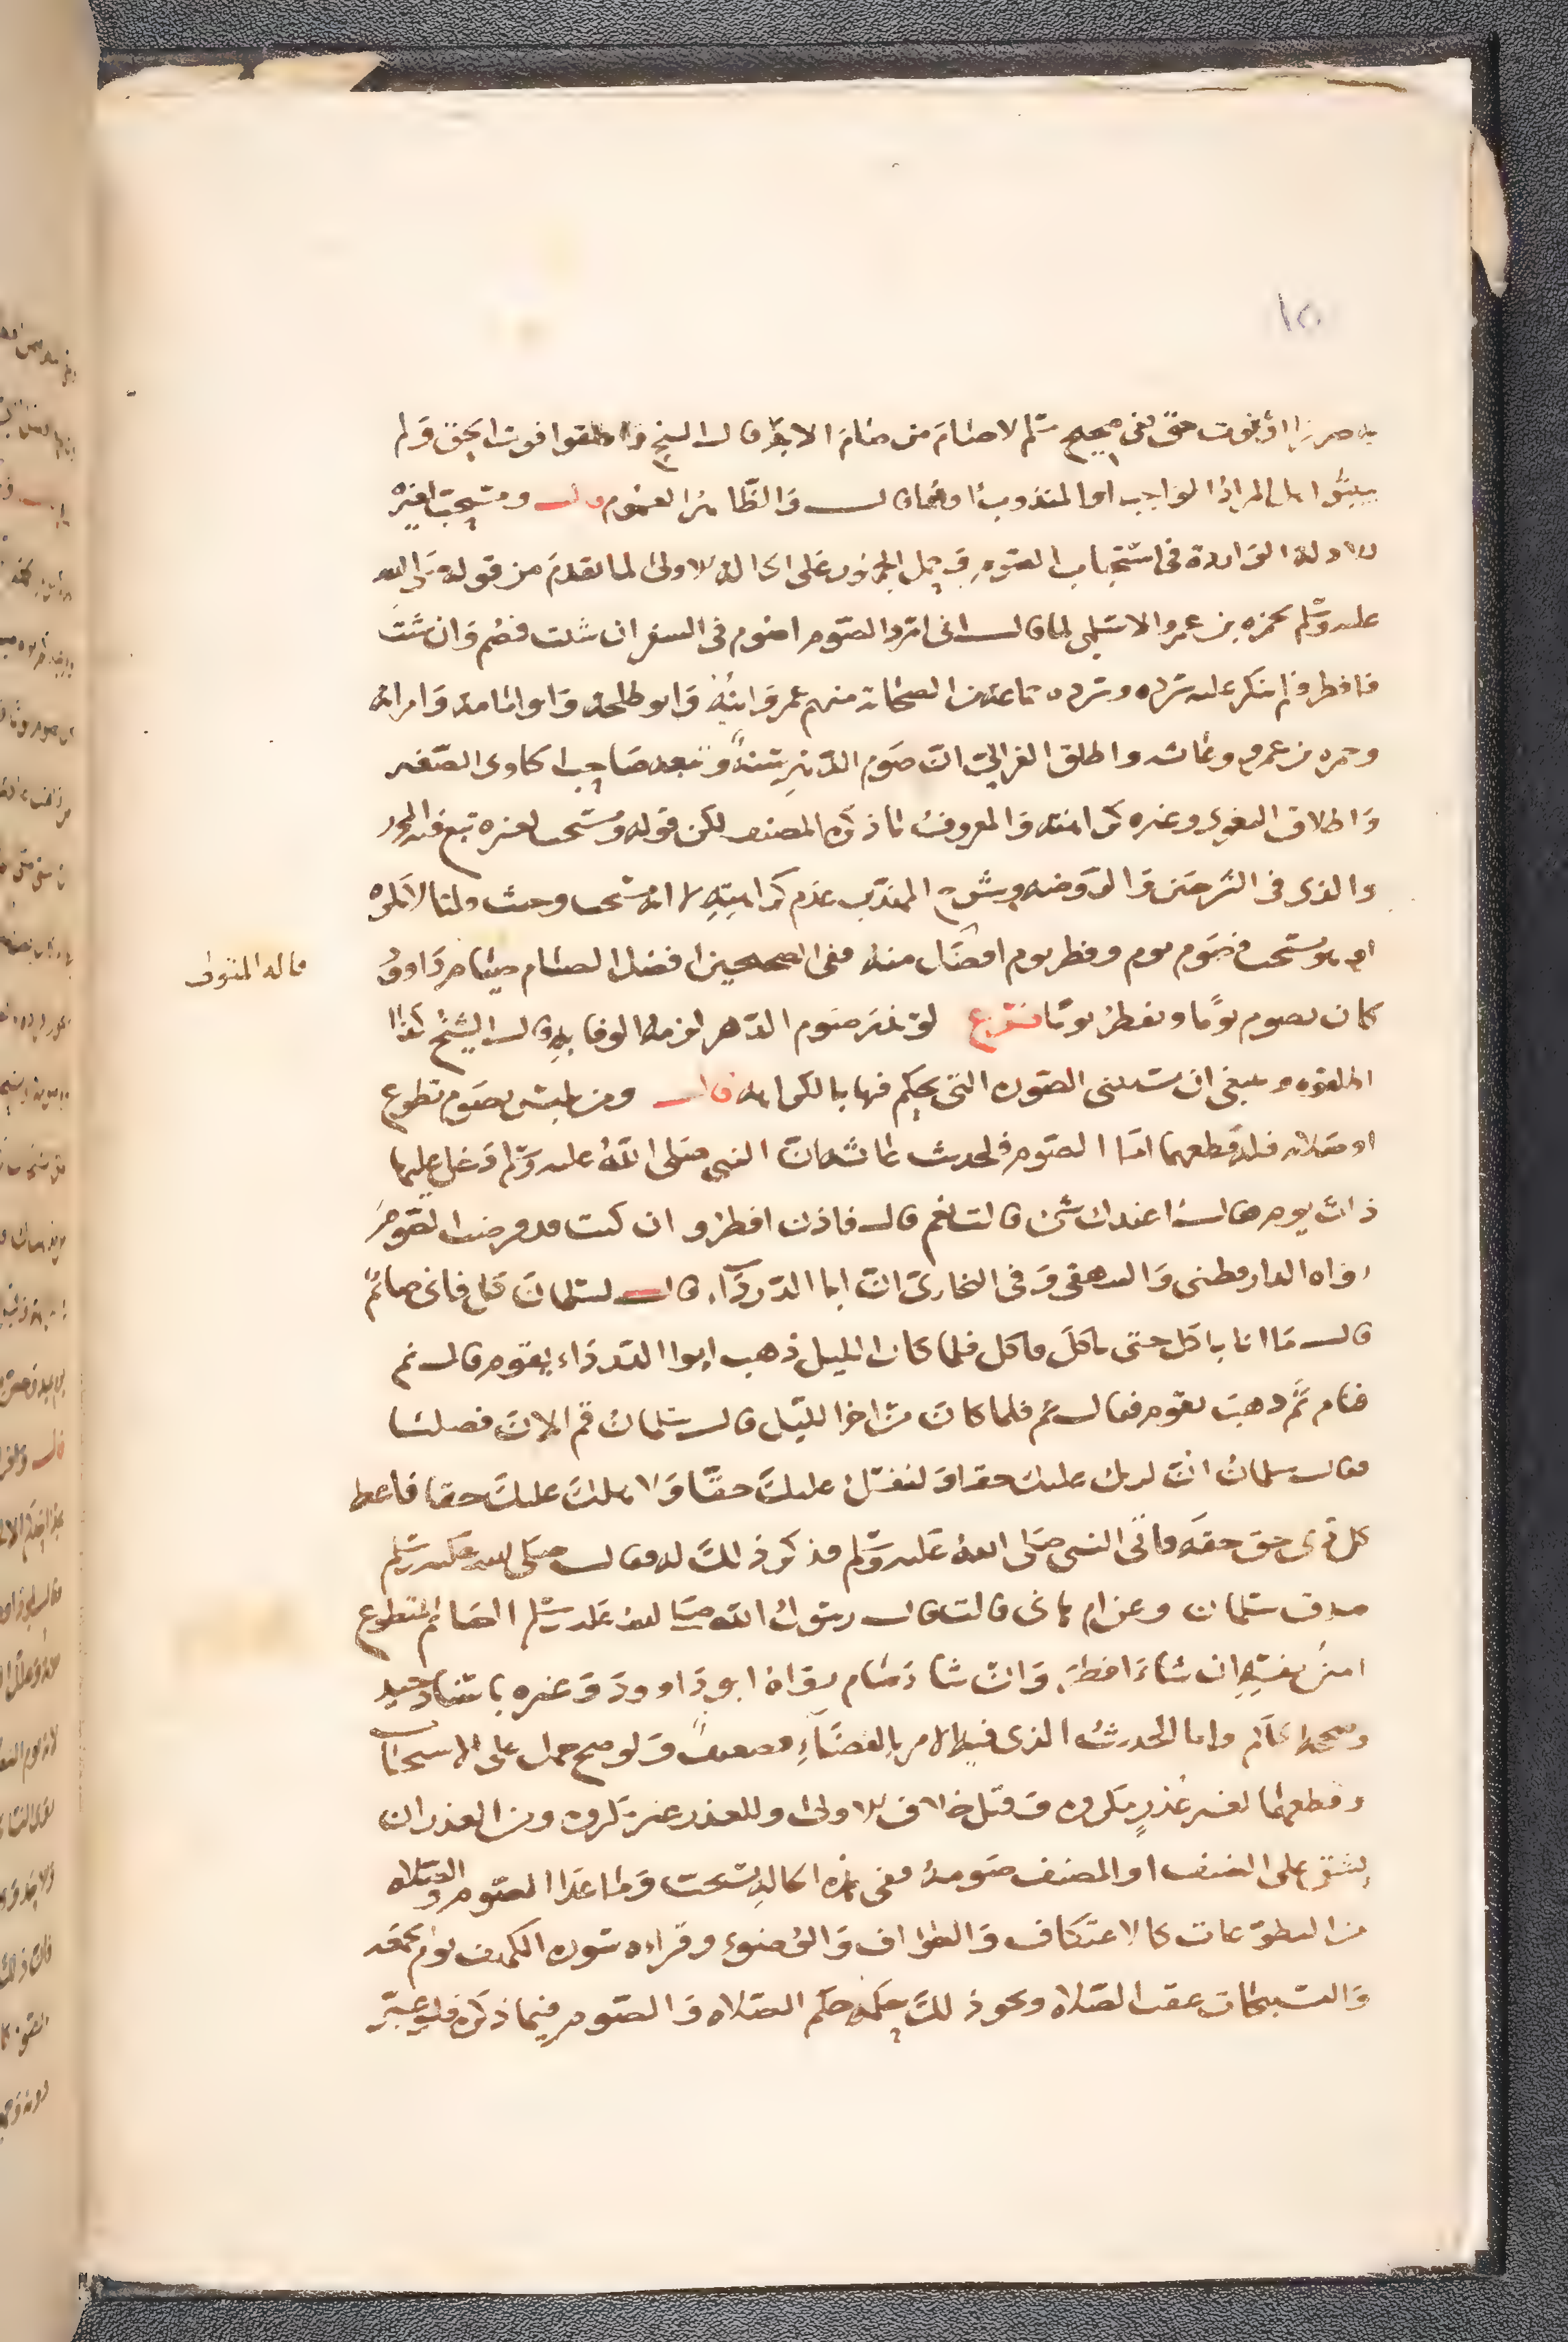 ١٥
به ضررا او فوت حق ففي صحيح مسلم لا صام من صام الابد قال الشيخ واطلقوا فوت الحق ولم
يبينوا هل المراد الواجب او المندوب قال والظاهر العموم قال ويستحب لغيره
للادلة الواردة في استحباب الصوم وحمل المحذور على الحالة الاولى لما تقدم من قوله صلى الله
عليه وسلم لحمزه بن عمرو الاسلمي لما قال اني اسرد الصوم افاصوم في السفر ان شئت فصم وان شئت
فافطر ولم ينكر عليه سرده وسرده جماعة من الصحابة منهم عمر وابنه وابو طلحة وابو امامة وامراته
وحمزه بن عمرو وعائشه واطلق الغزالي ان صوم الدهر سنة وتبعه صاحب الحاوي الصغير
واطلاق البغوي وغيره كراهته والمعروف ما ذكره المصنف لكن قوله ويستحب لغيره تبع فيه المحرر
والذي في الشرحين والروضه وشرح المهذب عدم كراهيته لا انه مستحب وحيث قلنا لا نكره
او هو مستحب فصوم يوم وفطر يوم افضل منه ففي الصحيحين افضل الصيام صيام داود
قاله المتولي
كان يصوم يوما ويفطر يوما فرع لو نذر صوم الدهر لزمه الوفا به قال الشيخ كذا
اطلقوه وينبغي ان يستثنى الصوره التي يحكم فيها بالكراهه قال ومن تلبس بصوم تطوع
او صلاته فله قطعهما اما الصوم فلحديث عائشه ان النبي صلى الله عليه وسلم دخل عليها
ذات يوم فقال اعندك شئ قالت نعم قال فاذن افطر وان كنت قد فرضت الصوم
رواه الدارقطني والبيهقي وفي البخاري ان ابا الدرداء قال لسلمان كل فاني صائم
قال ما انا باكل حتى تاكل فاكل فلما كان الليل ذهب ابوا الدرداء يقوم قال نم
فنام ثم ذهب يقوم فقال نم فلما كان من اخر الليل قال سلمان قم الان فصليا
فقال سلمان ان لربك عليك حقا ولنفسك عليك حقا ولاهلك عليك حقا فاعط
كل ذي حق حقه فاتى النبي صلى الله عليه وسلم فذكر ذلك له فقال صلى الله عليه وسلم
صدق سلمان وعن ام هاني قالت قال رسول الله صلى الله عليه وسلم الصائم المتطوع
امير نفسه ان شاء افطر وان شاء صام رواه ابو داوود وغيره باسناد جيد
وصححه الحاكم واما الحديث الذي فيه الامر بالقضاء فضعيف ولو صح حمل على الاستحباب
وقطعهما لغير عذر مكروه وقيل خلاف الاولى وللعذر غير مكروه ومن العذر ان
يشق على الضيف او المضيف صومه ففي هذه الحاله يستحب وما عدا الصوم والصلاه
من التطوعات كالاعتكاف والطواف والوضوء وقراءه سوره الكهف يوم الجمعه
والتسبيحات عقب الصلاه ونحو ذلك حكمه حكم الصلاه والصوم فيما ذكره